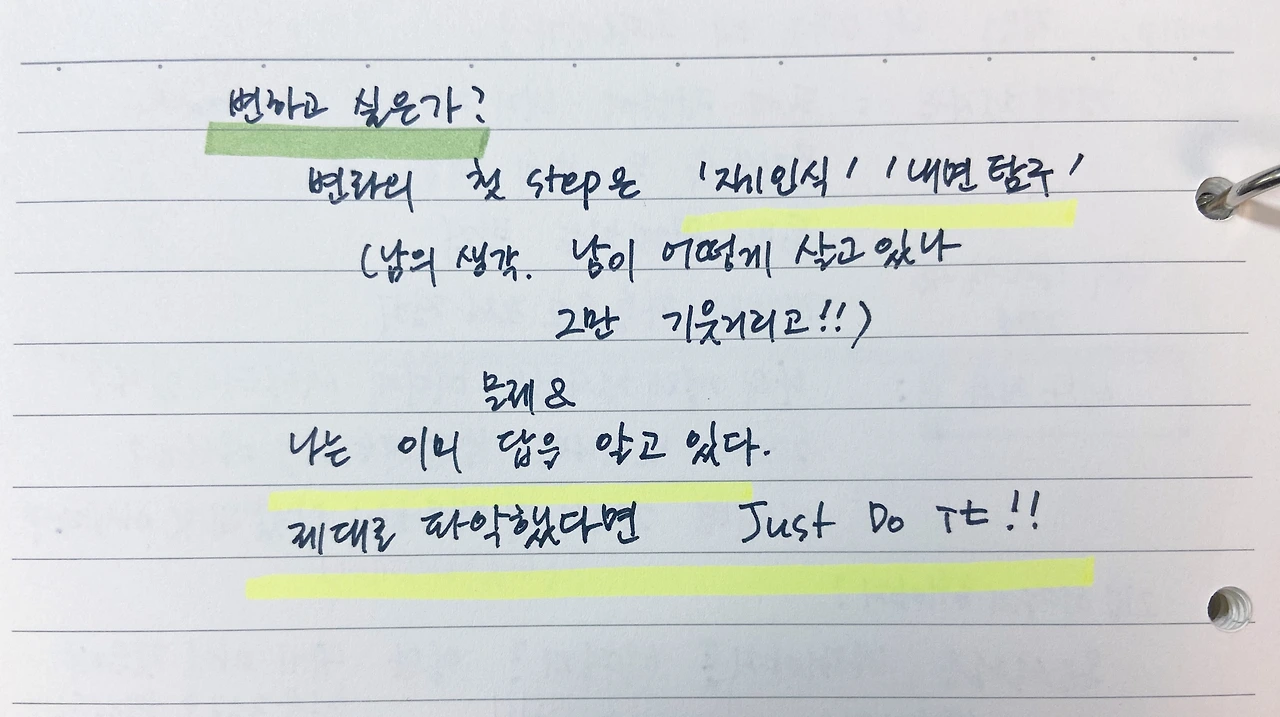 변하고 싶은가?
변화의 첫 step은 '자기인식' '내면탐구'
(남의 생각. 남이 어떻게 살고있나
그만 기웃거리고!!)
문제 &
나는 이미 답을 알고 있다.
제대로 파악했다면 Just Do It!!